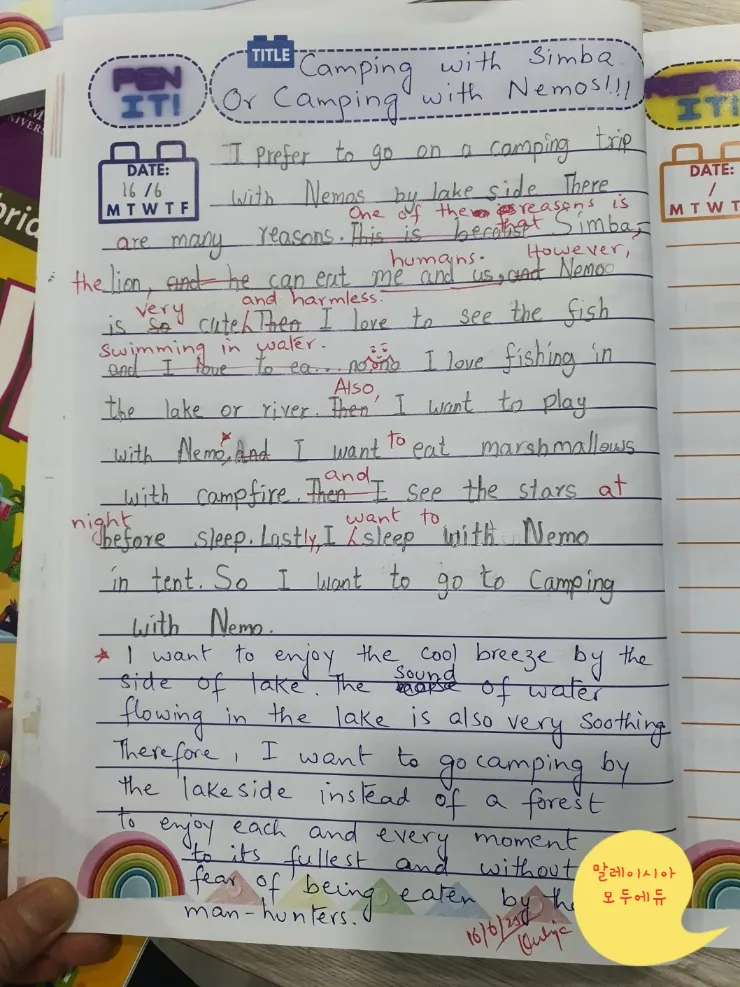 TITLE
Camping with Simba
Or Camping with Nemos!!!
PEN
IT!
DATE:
16/6
M T W T F
I prefer to go on a camping trip
with Nemos by lake side There
One of the reasons is
are many reasons. This is because that Simba,
humans. However,
the lion, and he can eat me and us, and Nemo
very and harmless.
is so cute Then I love to see the fish
swimming in water.
and I love to ea... noono I love fishing in
Also,
the lake or river. Then I want to play
with Nemo. And I want to eat marshmallows
and
with campfire. Then I see the stars at
night want to
before sleep. Lastly, I sleep with Nemo
in tent. So I want to go to Camping
with Nemo.
* I want to enjoy the cool breeze by the
sound
side of lake. The of water
flowing in the lake is also very soothing
Therefore, I want to go camping by
the lakeside instead of a forest
to enjoy each and every moment
to its fullest and without
fear of being eaten by the
man-hunters.
16/6/25
말레이시아
모두에듀
IT!
DATE:
/
M T W T